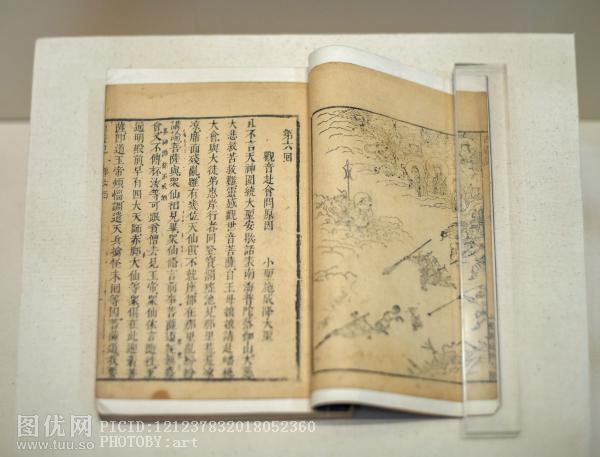 第六回
觀音赴會問原因 小聖施威降大聖
且不言天神圍繞大聖安歇話表南海普陀落伽山大慈
大悲救苦救難靈感觀世音菩薩自王母娘娘請赴蟠桃
大會與大徒弟惠岸行者同登寶閣瑤池見那里荒荒涼
凉席面殘亂雖有幾位天仙俱不就座都在那里亂紛紛
講論菩薩與眾仙相見畢眾仙備言前事菩薩道既無盛
會又不傳杯汝等可跟貧僧去見玉帝眾仙怡然隨往至
通明殿前早有四大天師赤脚大仙等眾俱在此迎着菩
薩即道玉帝煩惱調遣天兵擒怪未回等因菩薩道我要
图优网
www.tuu.so
PICID:121237832018052360
PHOTOBY:art